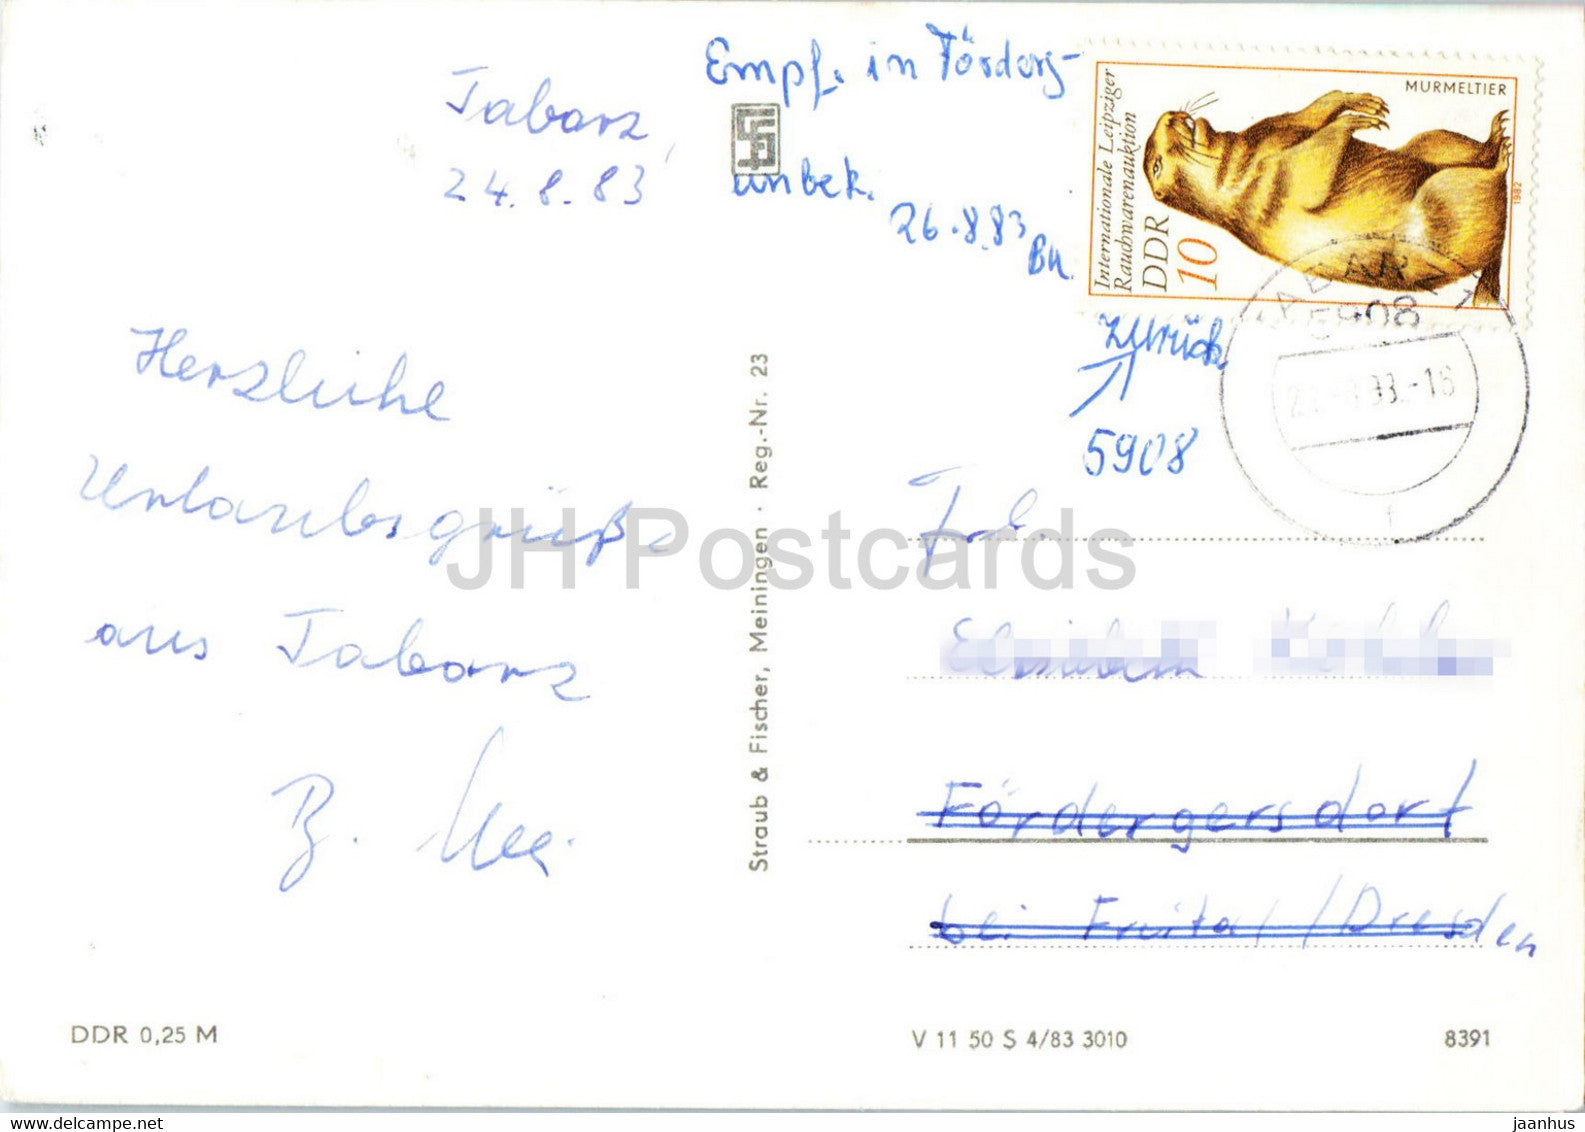 Tabarz,
24.8.83
Empf. in Förderg-
unbek.
26.8.83
Bu.
zurück
5908
MURMELTIER
Internationale Leipziger
Rauchwarenauktion
DDR
10
1982
TABARZ 1
5908
Herzliche
Urlaubsgrüße
aus Tabarz
B.
Straub & Fischer, Meiningen · Reg.-Nr. 23
Frl.
Fördergersdorf
bei Freital/Dresden
DDR 0,25 M
V 11 50 S 4/83 3010
8391
JH Postcards
delcampe.net
jaanhus